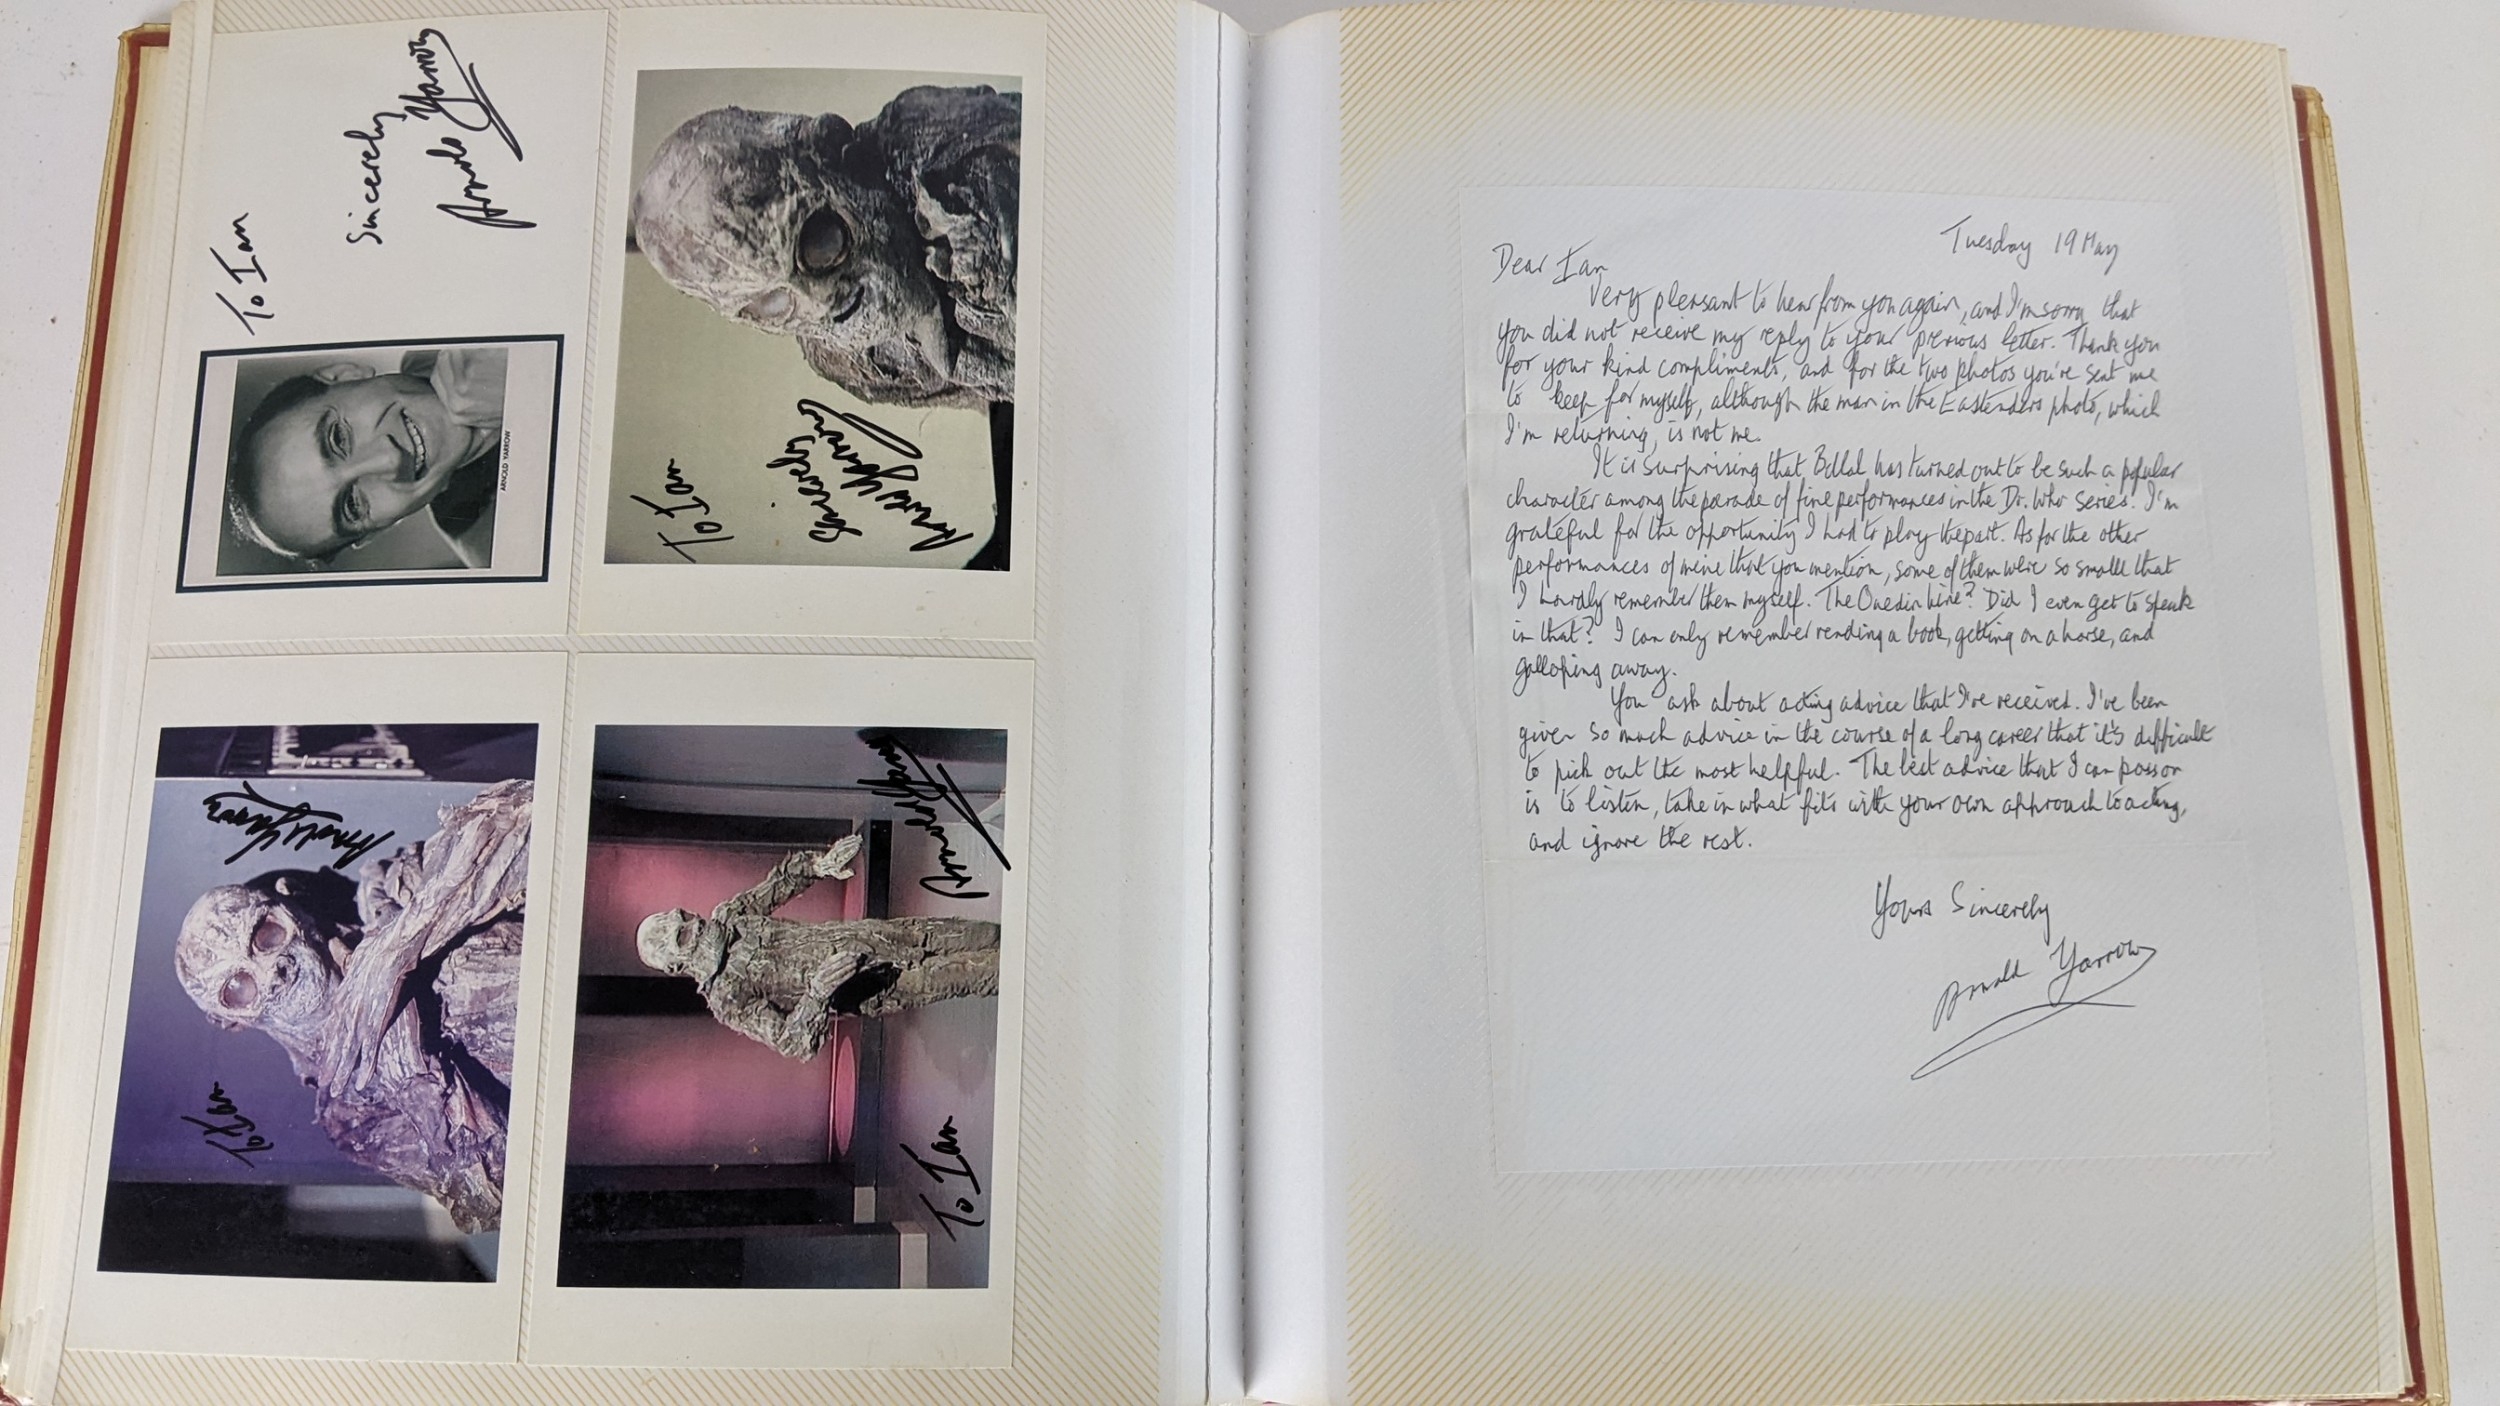 To Ian
Sincerely
Arnold Yarrow
ARNOLD YARROW
To Ian
Sincerely
Arnold Yarrow
To Ian
Arnold Yarrow
To Ian
Arnold Yarrow
Tuesday 19 May
Dear Ian
Very pleasant to hear from you again, and I'm sorry that
you did not receive my reply to your previous letter. Thank you
for your kind compliments, and for the two photos you've sent me
to keep for myself, although the man in the Eastenders photo, which
I'm returning, is not me.
It is surprising that Bellal has turned out to be such a popular
character among the parade of fine performances in the Dr. Who series. I'm
grateful for the opportunity I had to play the part. As for the other
performances of mine that you mention, some of them were so small that
I hardly remember them myself. The Onedin Line? Did I even get to speak
in that? I can only remember reading a book, getting on a horse, and
galloping away.
You ask about acting advice that I've received. I've been
given so much advice in the course of a long career that it's difficult
to pick out the most helpful. The best advice that I can pass on
is to listen, take in what fits with your own approach to acting,
and ignore the rest.
Yours Sincerely
Arnold Yarrow